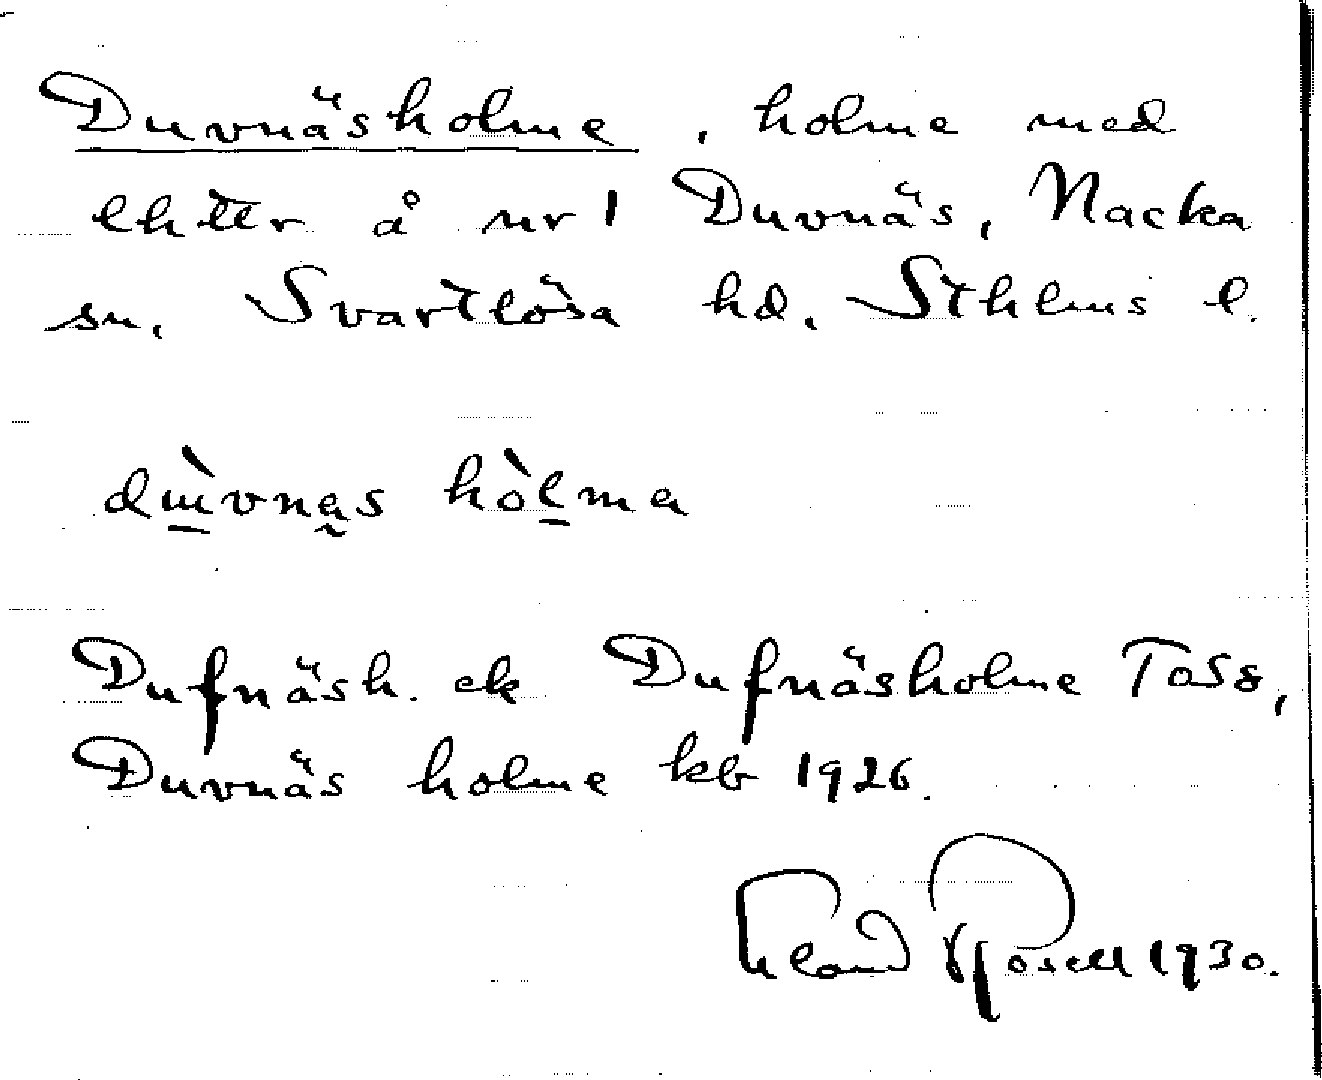 Duvnäsholme, holme med
lht er å nr 1 Duvnäs, Nacka
sn, Svartlösa hd, Sthlms l.
dùvnas hòlma
Dufnäsh. ek Dufnäsholme
Duvnäs holme kb 1926.
Erland Rosell 1930.